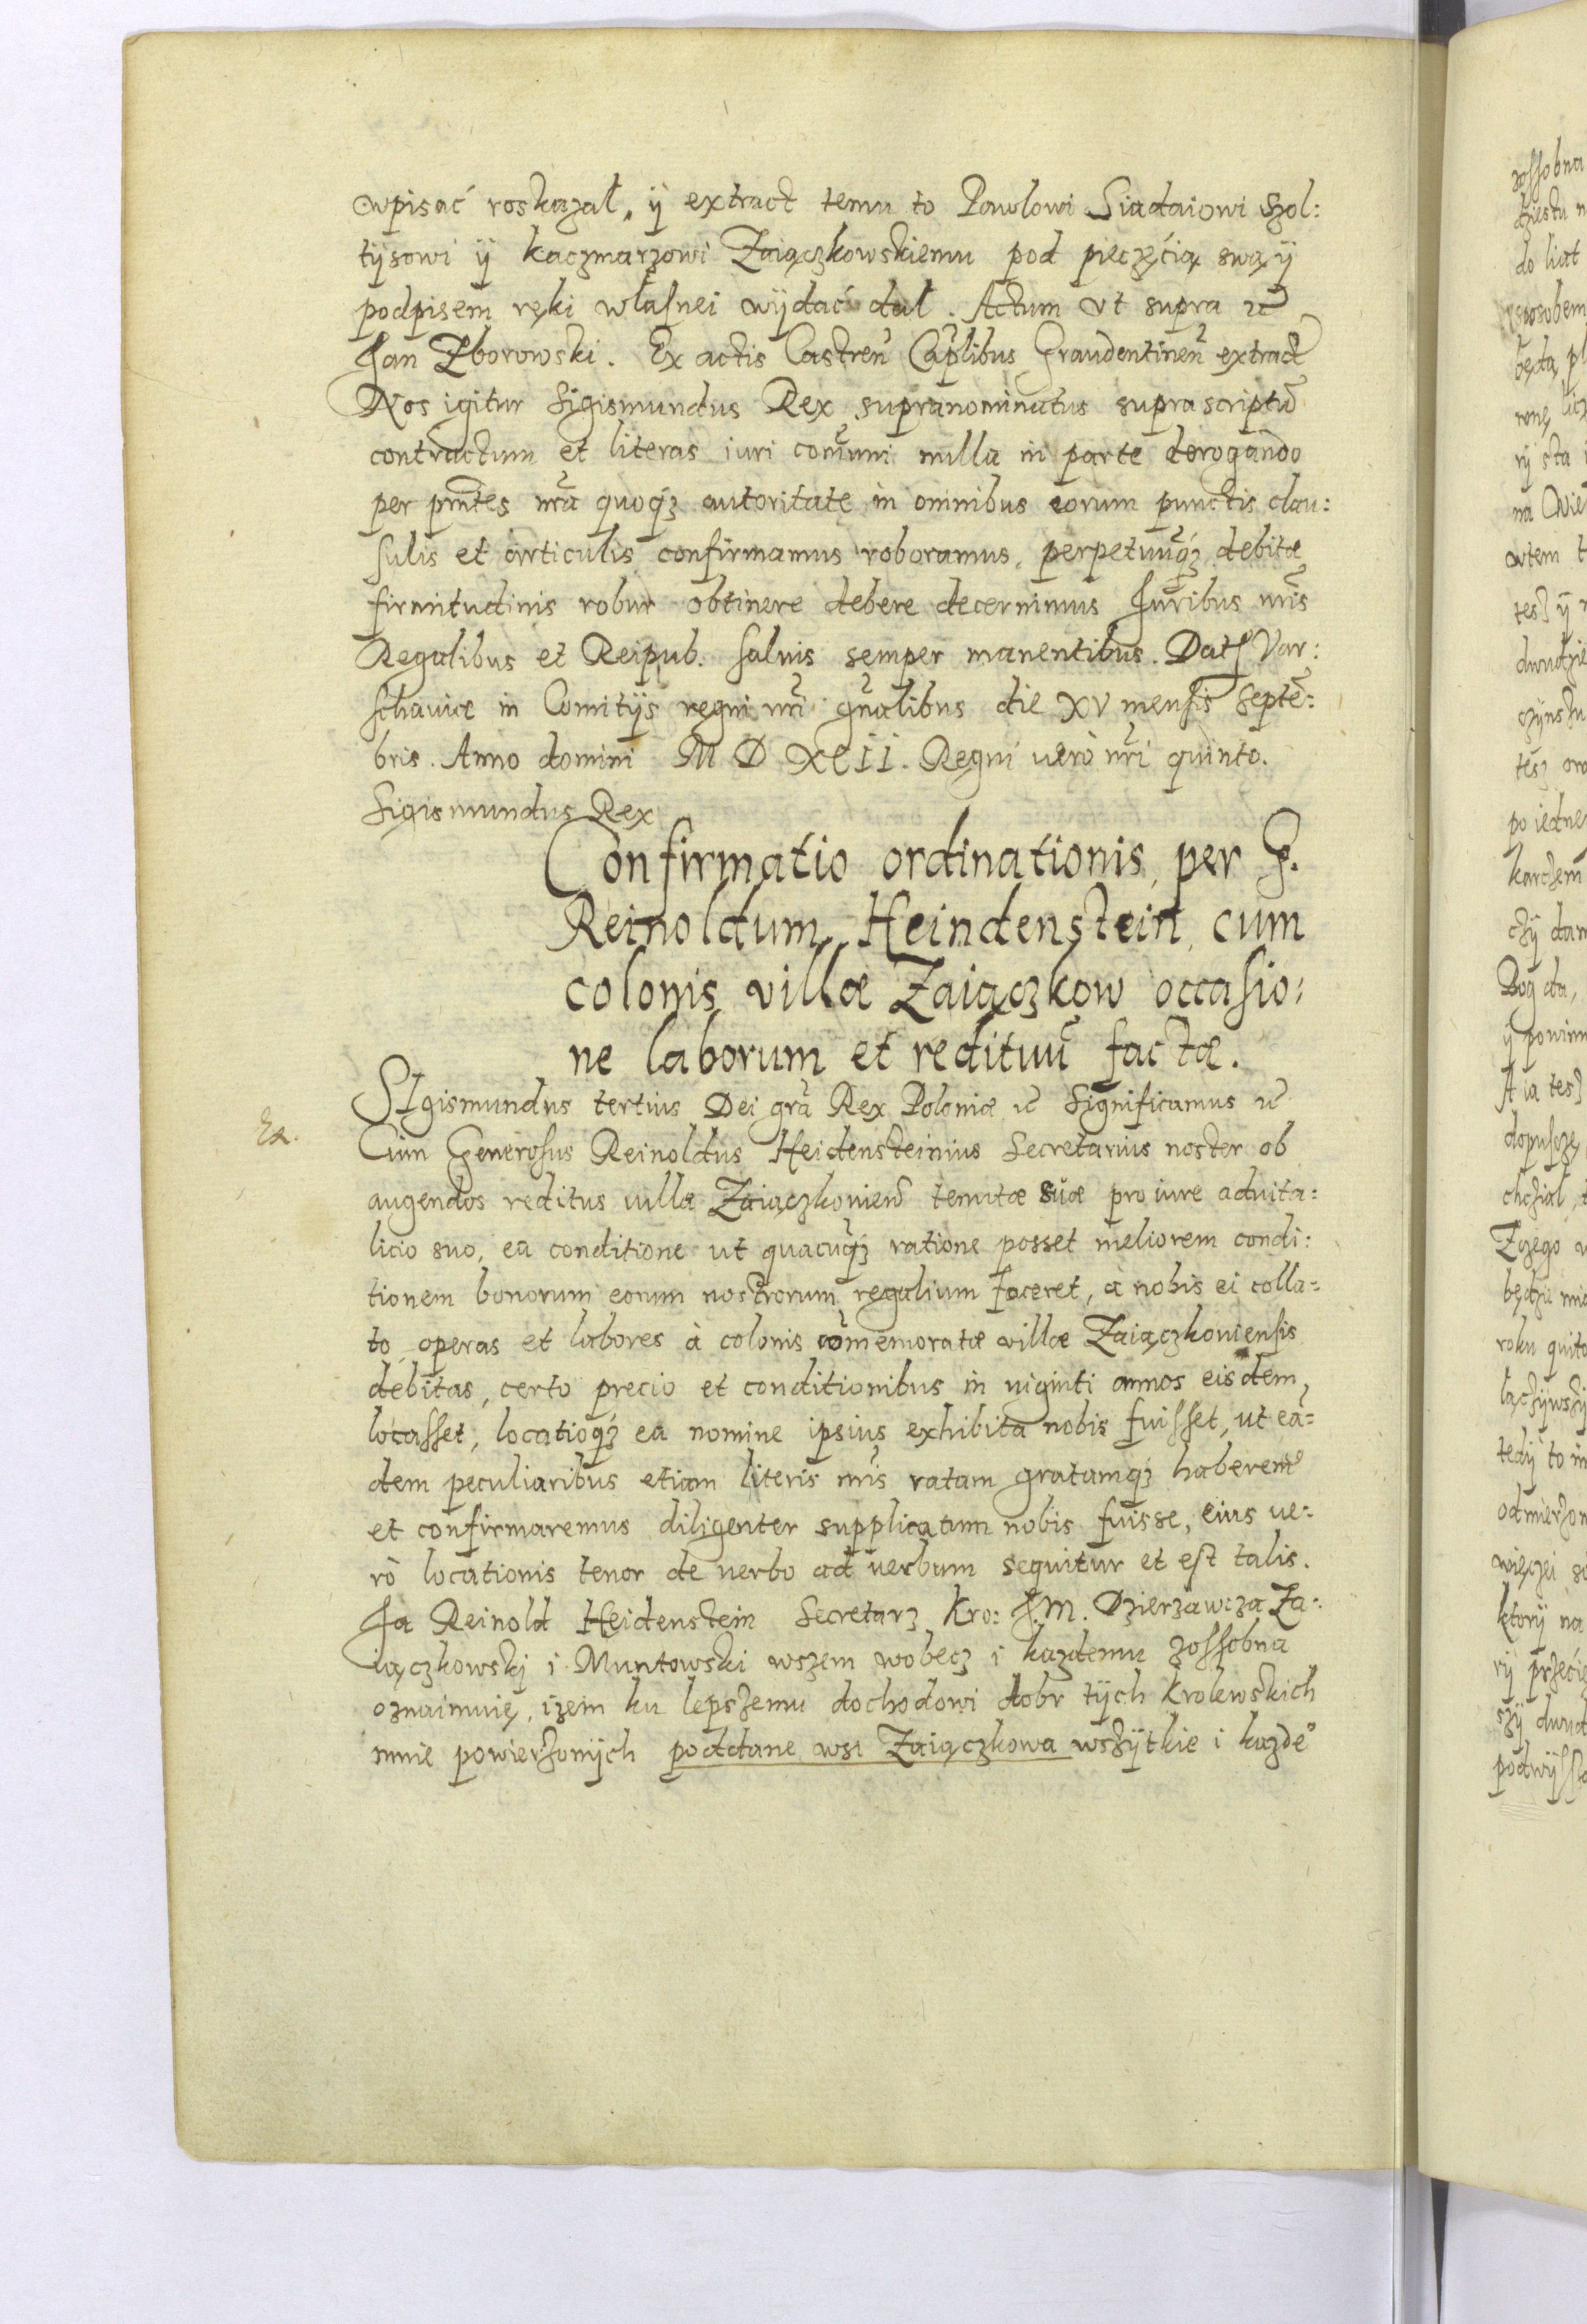 wpisać roskazał, ÿ extract temu to Pawlowi Siadaiowi szol:
tÿsowi ÿ kaczmarzowi Zaiączkowskiemu pod pieczęcią swą ÿ
podpisem ręki własnei wÿdać dał. Actum vt supra
Jan Zborowski. Ex actis Castreñ Cap̃libus Graudentineñ extract
Nos igitur Sigismundus Rex supranominatus suprascriptũ
contractum et literas iuri com̃uni nulla in parte derogando
per pñtes nr̃a quoqȝ autoritate in omnibus eorum punctis clau:
sulis et articulis confirmamus roboramus, perpetuũqȝ debitæ
firmitudinis robur obtinere debere decernimus Juribus nr̃is
Regalibus et Reipub. saluis semper manentibus. Dat Var:
schauiæ in Comitÿs regni nr̃i gñalibus die XV mensis Septẽ:
bris. Anno domini M D XCII. Regni uerò nr̃i quinto.
Sigismundus Rex
Confirmatio ordinationis, per G.
Reinoldum Heindenstein, cum
colonis villæ Zaiączkow occasio:
ne laborum et redituũ factæ.
SIgismundus tertius Dei gr̃a Rex Poloniæ Significamus
Cùm Generosus Reinoldus Heidensteinius Secretarius noster ob
augendos reditus uillæ Zaiączkownieñ tenutæ suæ pro iure aduita:
licio suo, ea conditione ut quacũqȝ ratione posset meliorem condi:
tionem bonorum eorum nostrorum regalium faceret, à nobis ei colla-
to, operas et labores à colonis com̃emoratæ villæ Zaiączkouiensis
debitas, certo precio et conditionibus in uiginti annos eisdem
locasset, locatioqȝ ea nomine ipsius exhibita nobis fuisset, ut eã-
dem peculiaribus etiam literis nr̃is ratam gratamqȝ haberem9
et confirmaremus diligenter supplicatum nobis fuisse, eius ue-
rò locationis tenor de uerbo ad uerbum sequitur et est talis.
Ja Reinold Heidenstein Secretarz Kro: J.M. Dzierzawcza Za-
iączkowskj i Muntowski wszem wobecz i kazdemu zossobna
oznaimuię, izem ku lepszemu dochodowi dobr tÿch krolewskich
mnie powierzonÿch poddane wsi Zaiączkowa wszÿtkie i kazde°